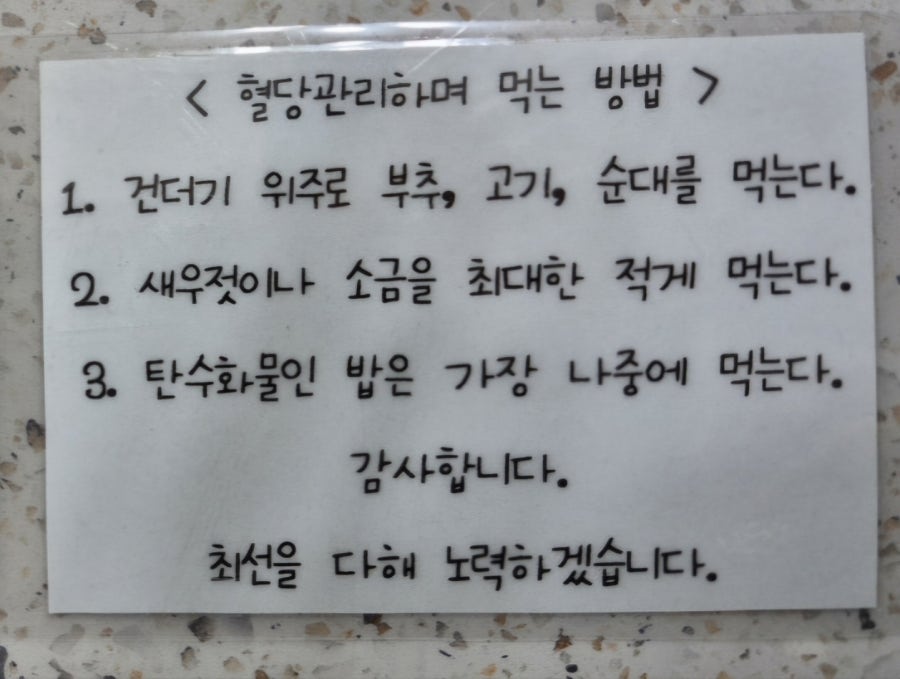 < 혈당관리하며 먹는 방법 >
1. 건더기 위주로 부추, 고기, 순대를 먹는다.
2. 새우젓이나 소금을 최대한 적게 먹는다.
3. 탄수화물인 밥은 가장 나중에 먹는다.
감사합니다.
최선을 다해 노력하겠습니다.